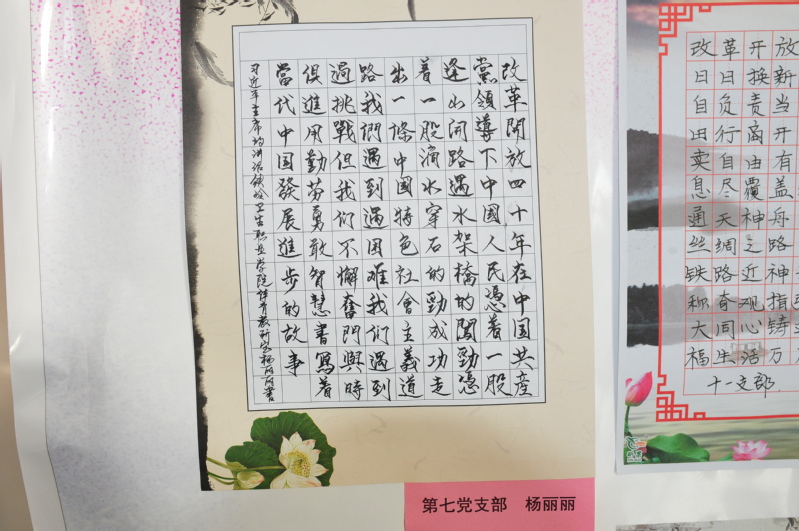 改革開放四十年在中国共產
黨領導下中國人民憑着一股
逢山開路遇水架橋的闖勁憑
着一股滴水穿石的勁成功走
出一條中國特色社會主義道
路我們遇到過困難我们遇到
過挑戰但我们不懈奮鬥與時
俱進用勤劳勇敢智慧書寫着
當代中国發展進步的故事
习近平主席的讲话铁岭卫生职业学院体育教研室杨丽丽书
第七党支部 杨丽丽
改革开放
日日换新
自负责当
田行商开
卖自由有
息尽覆盖
通天神舟
丝绸之路
铁路近神
称奇观指
大同心铸
福生活万
十一支部